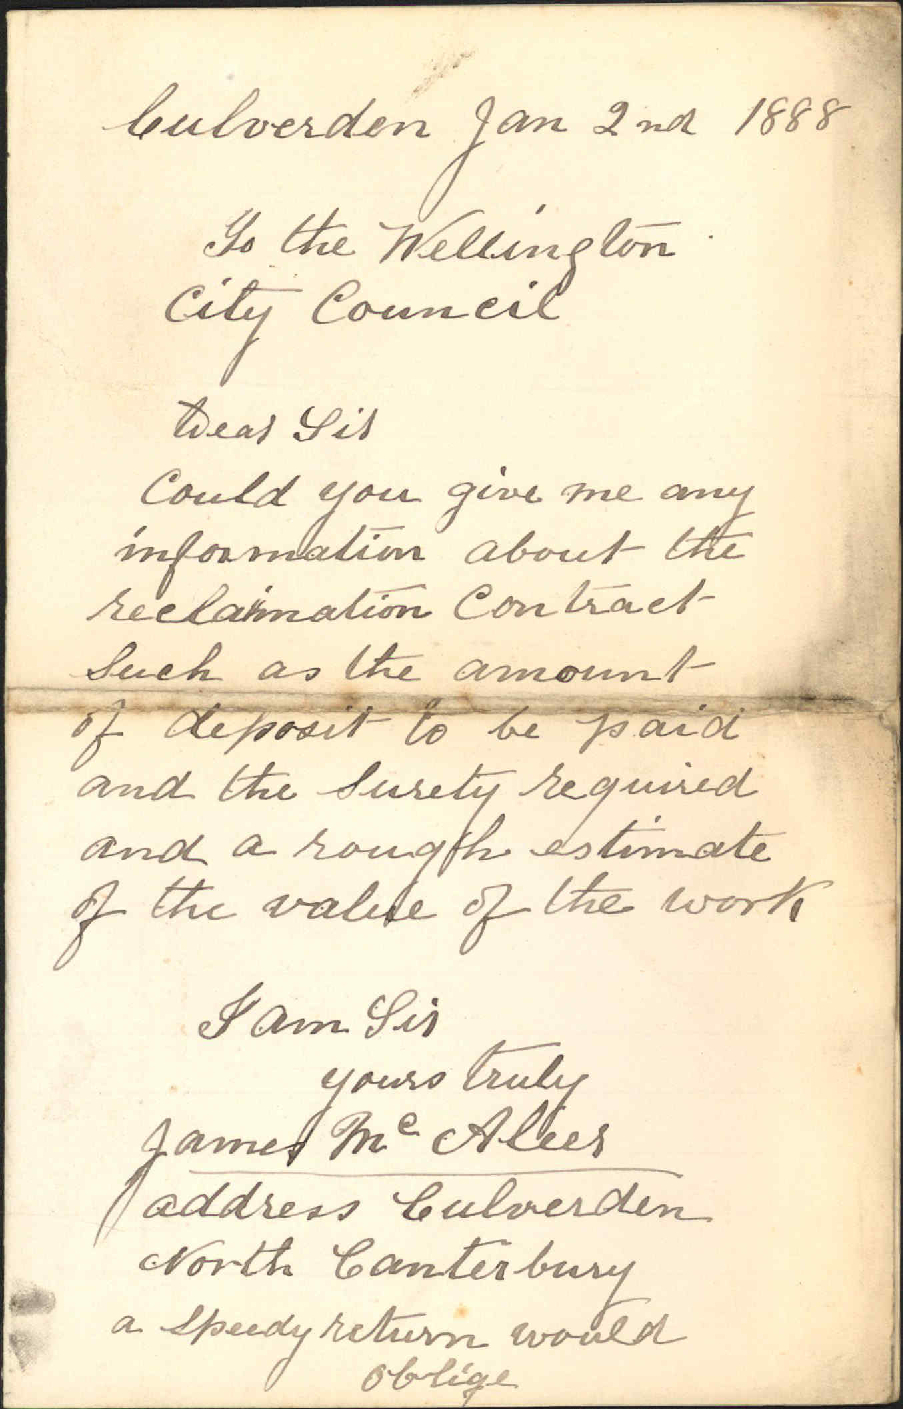 Culverden Jan 2nd 1888
To the Wellington
City Council
Dear Sir
Could you give me any
information about the
reclaimation Contract
Such as the amount
of deposit to be paid
and the Surety required
and a rough estimate
of the value of the work
I am Sir
yours truly
James Mc Aleer
address Culverden
North Canterbury
a Speedy return would
oblige